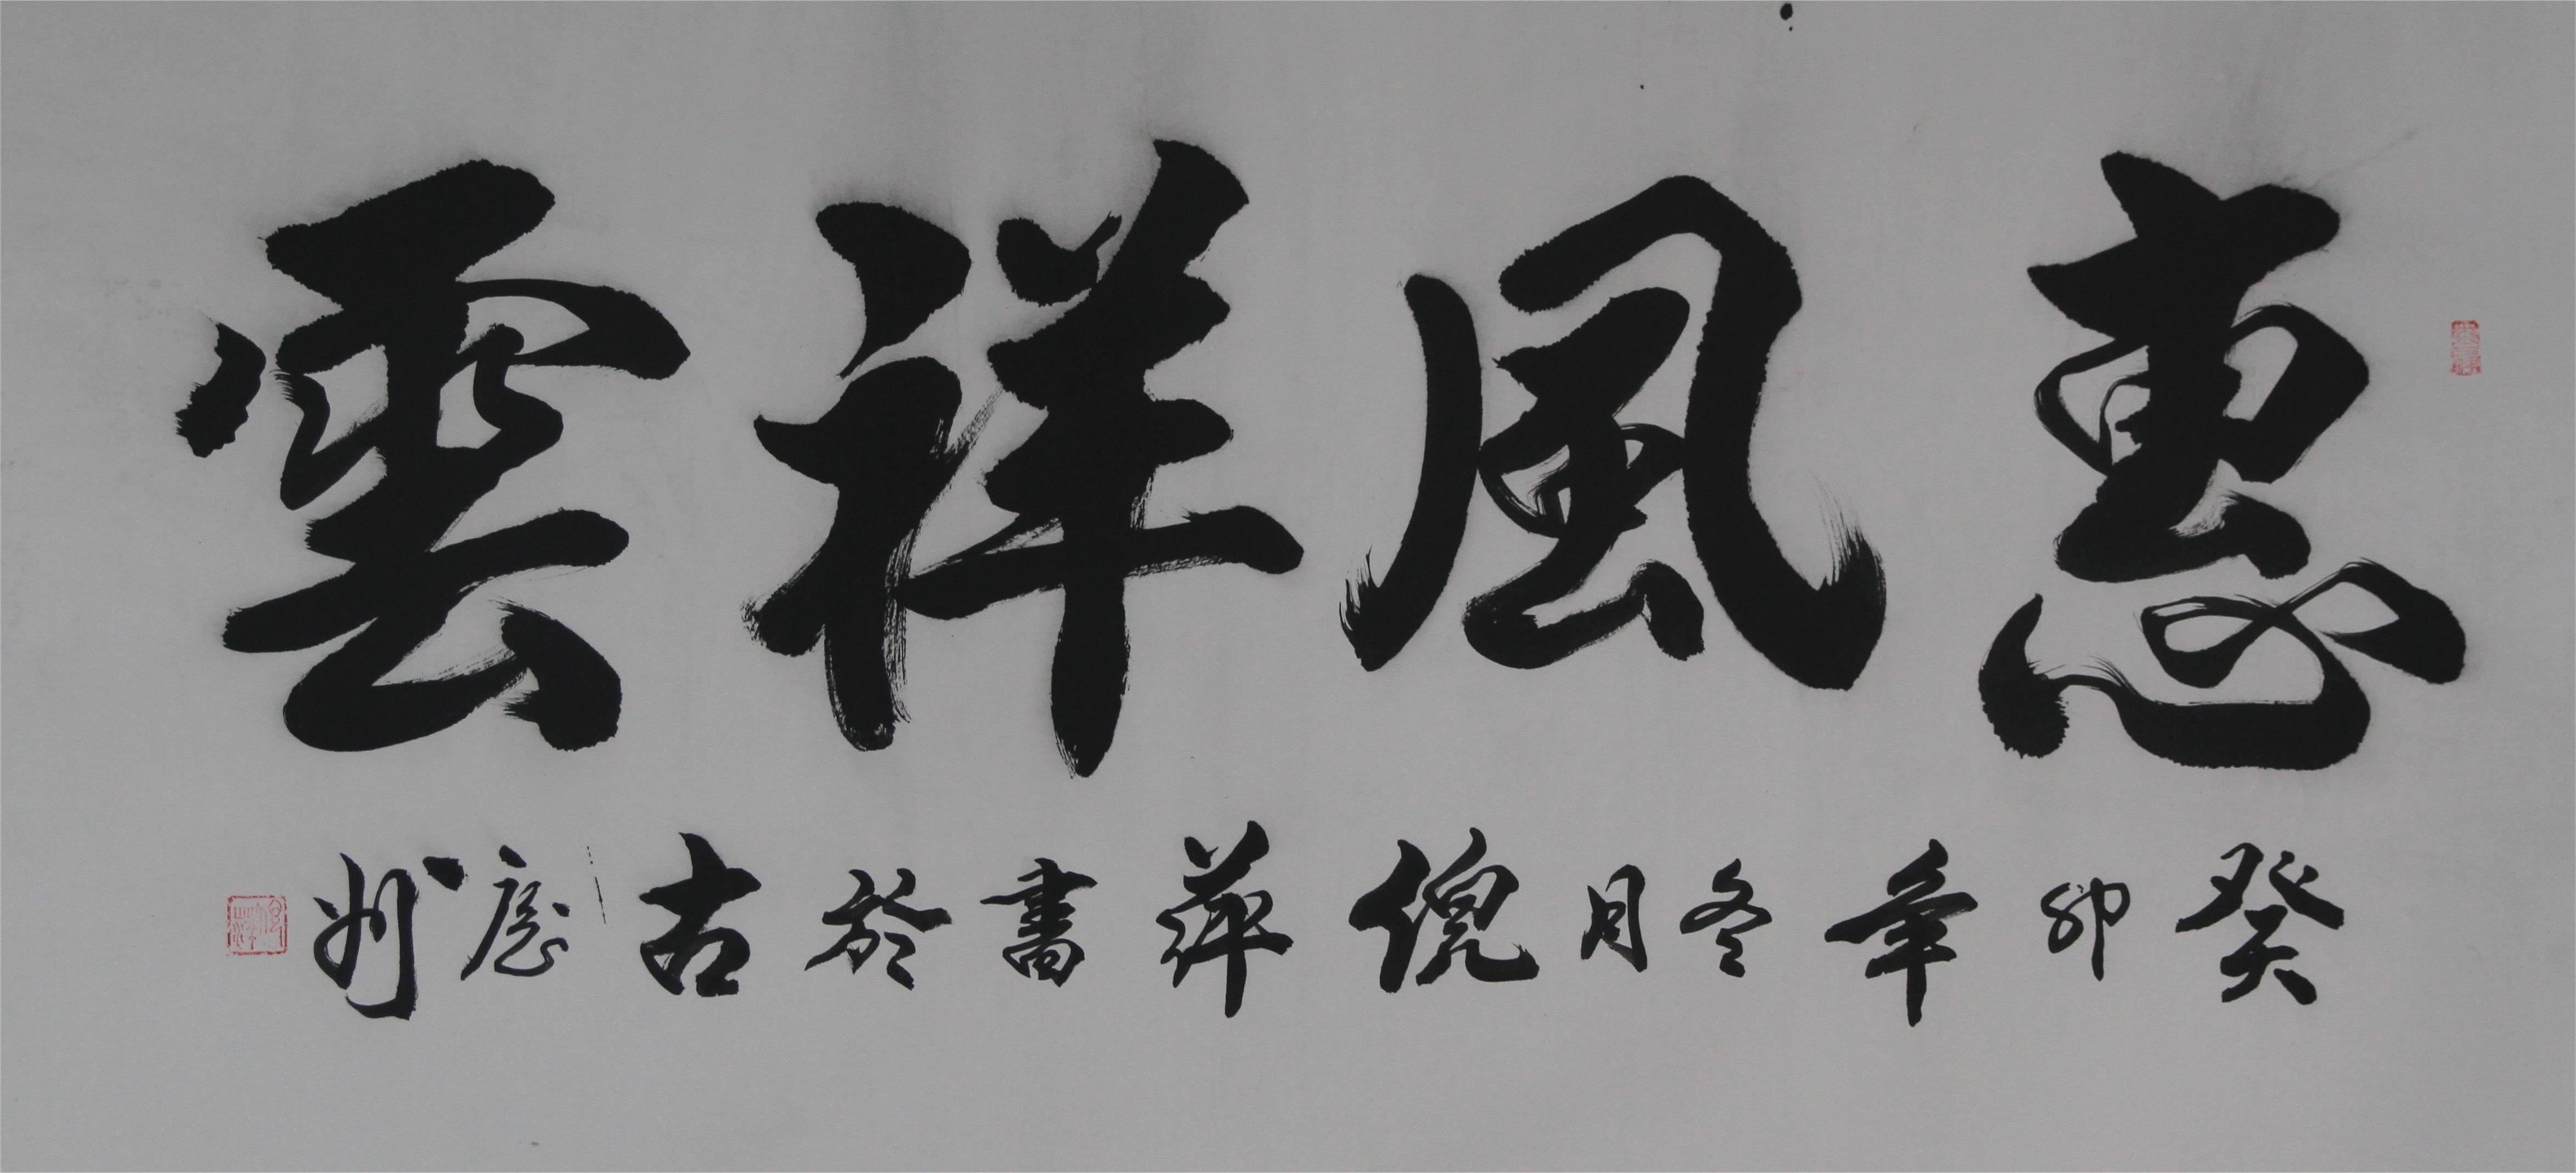 惠風祥雲
癸卯年冬月倪萍書於古廬州